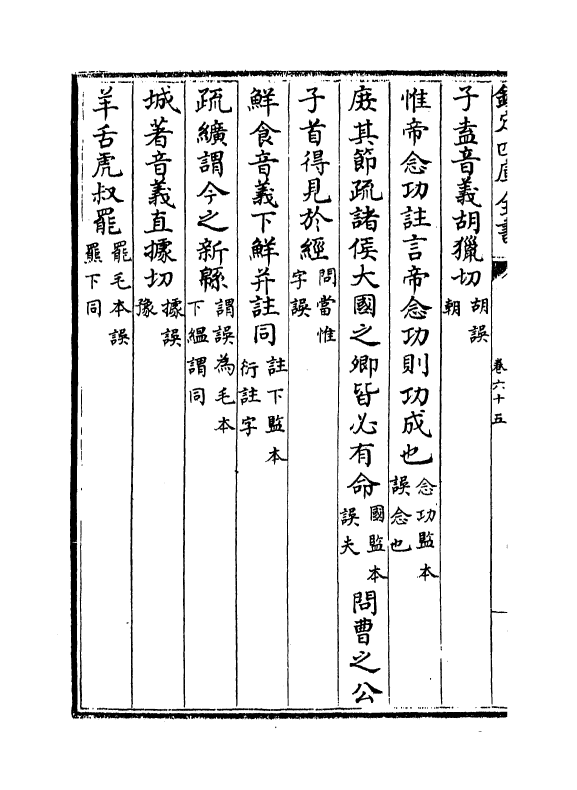 欽定四庫全書
卷六十五
子盍音義胡獵切胡誤朝
惟帝念功註言帝念功則功成也念功監本誤念也
庶其節疏諸侯大國之卿皆必有命國監本誤夫問曹之公
子首得見於經問當惟字誤
鮮食音義下鮮并註同註下監本衍註字
疏纊謂今之新緜謂誤為毛本下緼謂同
城著音義直據切據誤豫
羊舌虎叔羆羆毛本誤羆下同